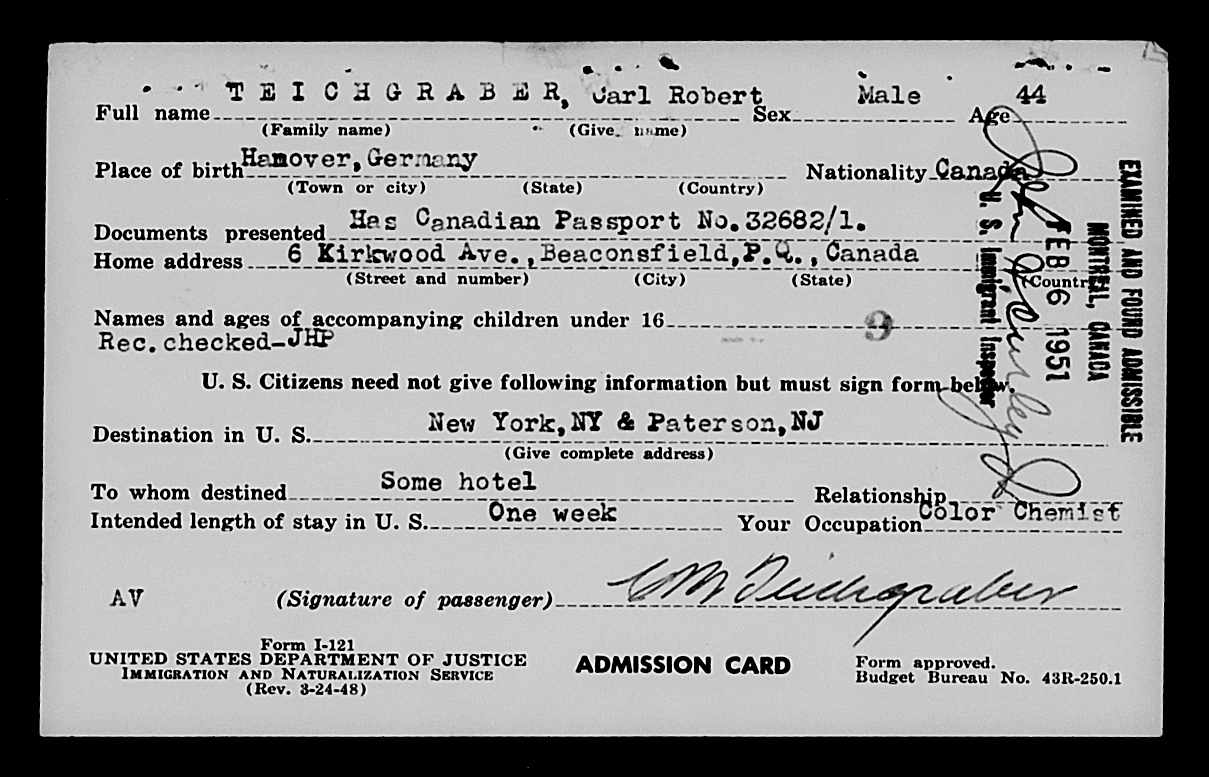 TEICHGRABER, Carl Robert Male 44
Full name Sex Age
(Family name) (Give name)
Hanover, Germany Canada
Place of birth Nationality
(Town or city) (State) (Country)
Has Canadian Passport No. 32682/1.
Documents presented
6 Kirkwood Ave., Beaconsfield, P.Q., Canada
Home address
(Street and number) (City) (State) (Country
Names and ages of accompanying children under 16 9
Rec. checked-JHP
U. S. Citizens need not give following information but must sign form below.
New York, NY & Paterson, NJ
Destination in U. S.
(Give complete address)
Some hotel
To whom destined Relationship
One week Color Chemist
Intended length of stay in U. S. Your Occupation
AV (Signature of passenger) Teichgraber
Form I-121
UNITED STATES DEPARTMENT OF JUSTICE
IMMIGRATION AND NATURALIZATION SERVICE
(Rev. 3-24-48)
ADMISSION CARD
Form approved.
Budget Bureau No. 43R-250.1
EXAMINED AND FOUND ADMISSIBLE
MONTREAL, CANADA
FEB 6 1951
John
U. S. Immigrant Inspector